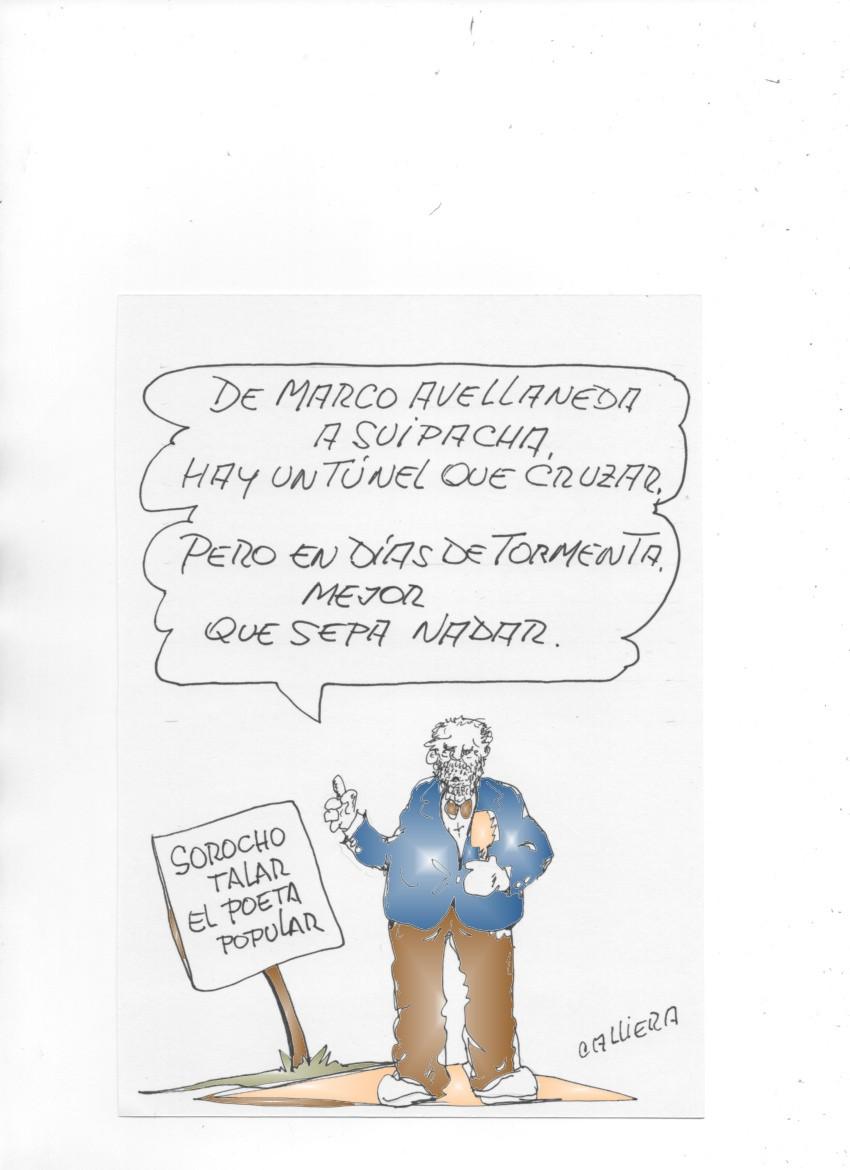 DE MARCO AVELLANEDA
A SUIPACHA,
HAY UN TÚNEL QUE CRUZAR.
PERO EN DÍAS DE TORMENTA.
MEJOR
QUE SEPA NADAR.
SOROCHO
TALAR
EL POETA
POPULAR
CALLIERA